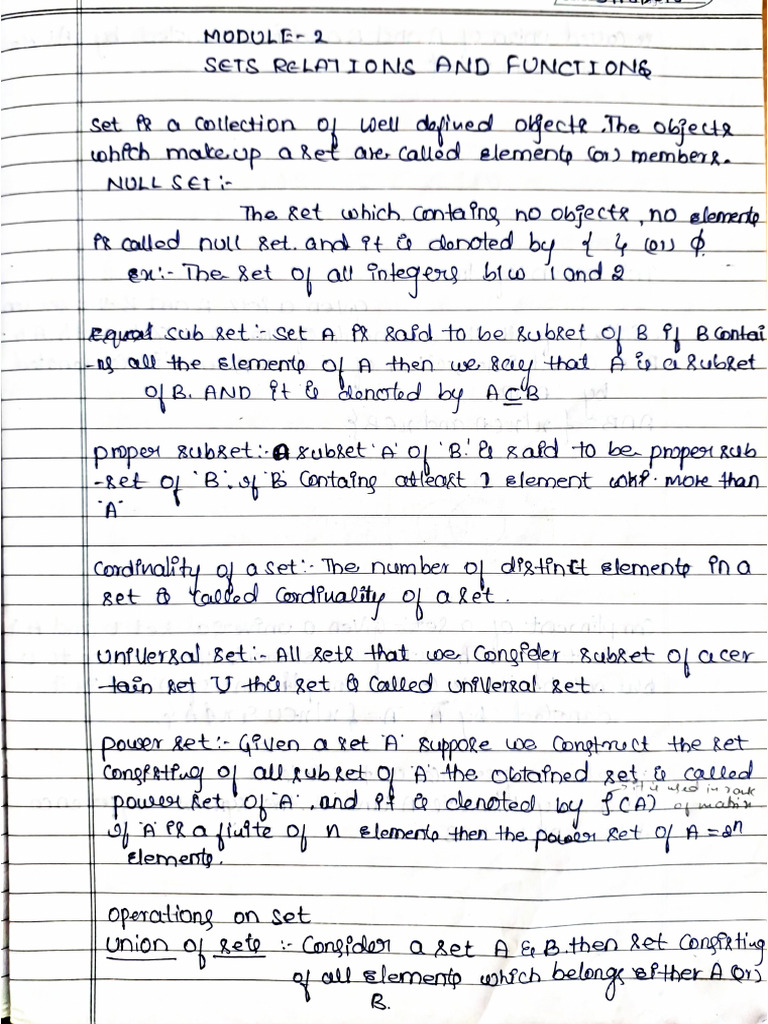 MODULE - 2
SETS RELATIONS AND FUNCTIONS
set is a collection of well defined objects. The objects
which make up a set are called elements (or) members.
NULL SET :-
The set which contains no objects, no elements
is called null set. and it is denoted by { } (or) ϕ.
ex:- The set of all integers b/w 1 and 2
Equal sub set :- set A is said to be subset of B if B contai
-ns all the elements of A then we say that A is a subset
of B. AND it is denoted by A ⊆ B
proper subset :- A subset 'A' of 'B' is said to be proper sub
-set of 'B'. if 'B' contains atleast 1 element more than
'A'
Cordinality of a set :- The number of distinct elements in a
set is called Cordinality of a set.
universal set :- All sets that we consider subset of a cer
-tain set U this set is called universal set.
power set :- Given a set 'A' suppose we construct the set
consisting of all subset of 'A' the obtained set is called
it is used in
power set of 'A'. and it is denoted by f(A) of matrix
if 'A' is a finite of n elements then the power set of A = 2ⁿ
elements.
operations on set
union of sets :- Consider a set A & B. then set consisting
of all elements which belongs either A (or)
B.